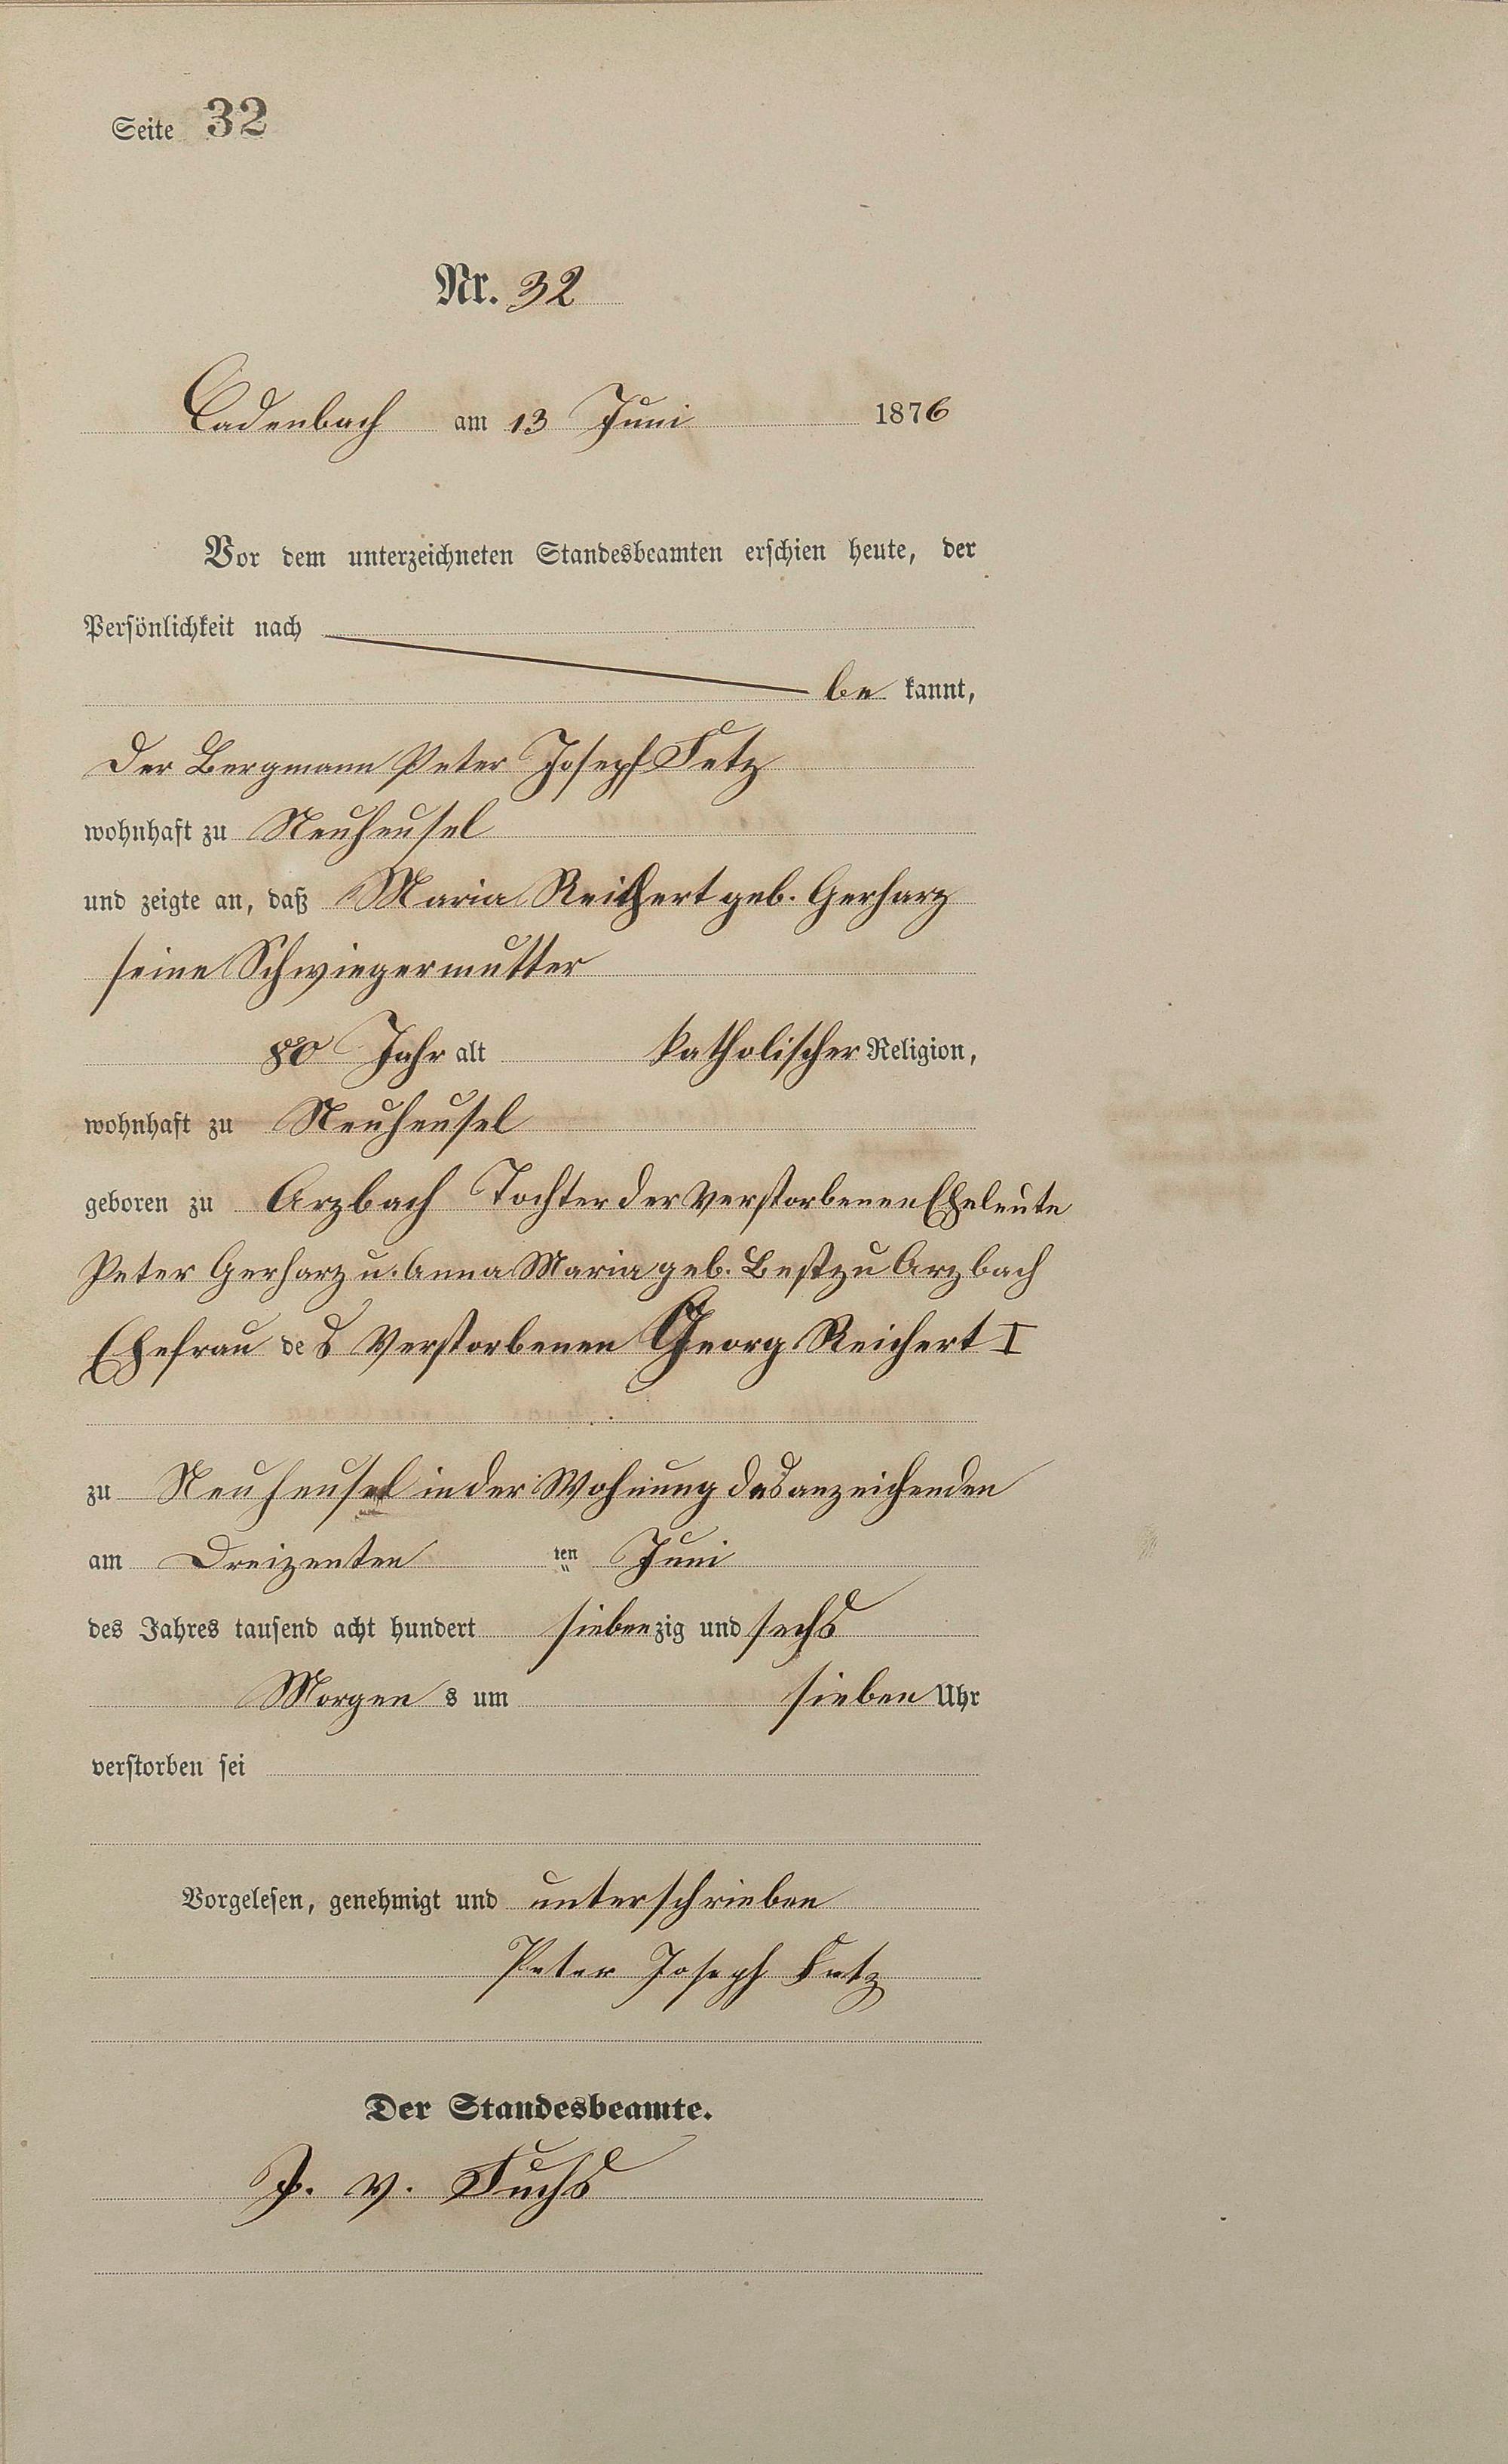 Seite 32
Nr. 32
Cadenbach am 13 Juni 1876
Vor dem unterzeichneten Standesbeamten erschien heute, der
Persönlichkeit nach
be kannt,
Der Bergmann Peter Joseph Fetz
wohnhaft zu Neuheusel
und zeigte an, daß Maria Reichert geb. Gerharz
seine Schwiegermutter
80 Jahr alt katholischer Religion,
wohnhaft zu Neuheusel
geboren zu Arzbach Tochter der verstorbenen Eheleute
Peter Gerharz u. Anna Maria geb. Best zu Arzbach
Ehefrau des verstorbenen Georg Reichert I
zu Neuheusel in der Wohnung des anzeichenden
am Dreizenten ten Juni
des Jahres tausend acht hundert siebenzig und sechs
Morgen s um sieben Uhr
verstorben sei
Vorgelesen, genehmigt und unterschrieben
Peter Joseph Fetz
Der Standesbeamte.
J. v. Fuchs